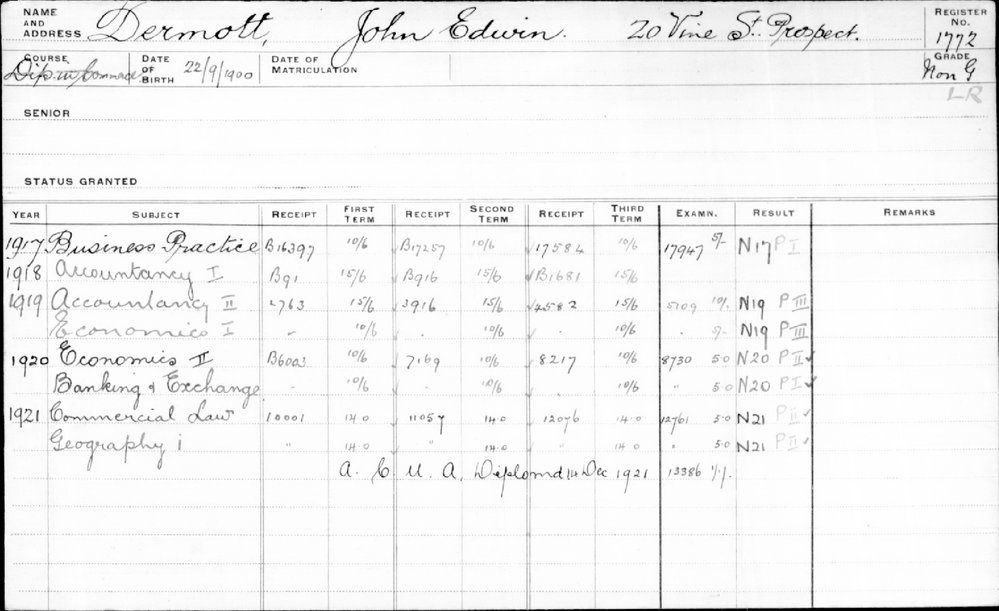 NAME AND ADDRESS Dermott, John Edwin. 20 Vine St. Prospect. REGISTER No. 1772
COURSE Dip. in Commerce DATE OF BIRTH 22/9/1900 DATE OF MATRICULATION GRADE Non G
LR
SENIOR
STATUS GRANTED
YEAR SUBJECT RECEIPT FIRST TERM RECEIPT SECOND TERM RECEIPT THIRD TERM EXAMN. RESULT REMARKS
1917 Business Practice B16397 10/6 B17257 10/6 17584 10/6 17947 5/- N17 P I
1918 Accountancy I B91 15/6 B916 15/6 B1681 15/6
1919 Accountancy II 2763 15/6 3916 15/6 4582 15/6 5109 10/- N19 P III
Economics I " 10/6 . 10/6 . 10/6 . 5/- N19 P III
1920 Economics II B6003 10/6 7169 10/6 8217 10/6 8730 5.0 N20 P II ✓
Banking & Exchange . 10/6 . 10/6 10/6 " 5.0 N20 P I ✓
1921 Commercial Law 10001 14.0 11057 14.0 12076 14.0 12761 5.0 N21 P II ✓
Geography I " 14.0 " 14.0 " 14.0 " 5.0 N21 P II ✓
A. C. U. A. Diploma 14 Dec 1921 13386